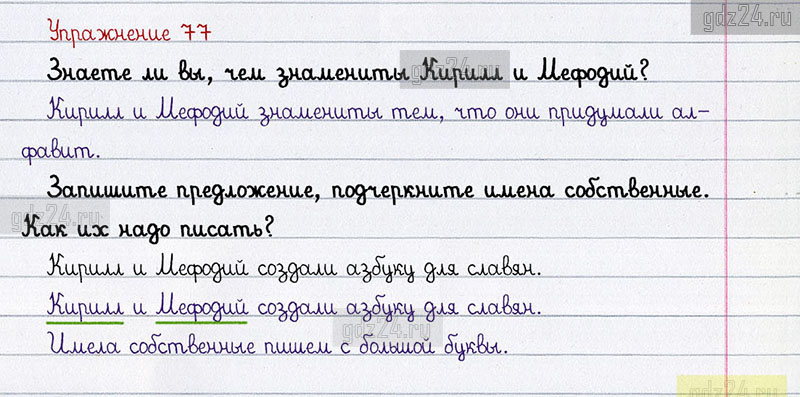 gdz24.ru
Упражнение 77
Знаете ли вы, чем знамениты Кирилл и Мефодий?
gdz24.ru
Кирилл и Мефодий знамениты тем, что они придумали ал-
фавит.
Запишите предложение, подчеркните имена собственные.
gdz24.ru
Как их надо писать?
Кирилл и Мефодий создали азбуку для славян.
Кирилл и Мефодий создали азбуку для славян.
gdz24.ru
Имела собственные пишем с большой буквы.
gdz24.ru